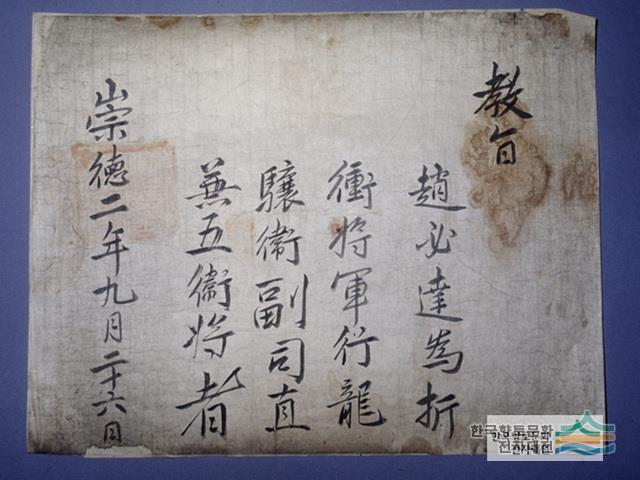 教旨
趙必達爲折
衝將軍行龍
驤衛副司直
兼五衛將者
崇德二年九月二十六日
한국향토문화
전자대전